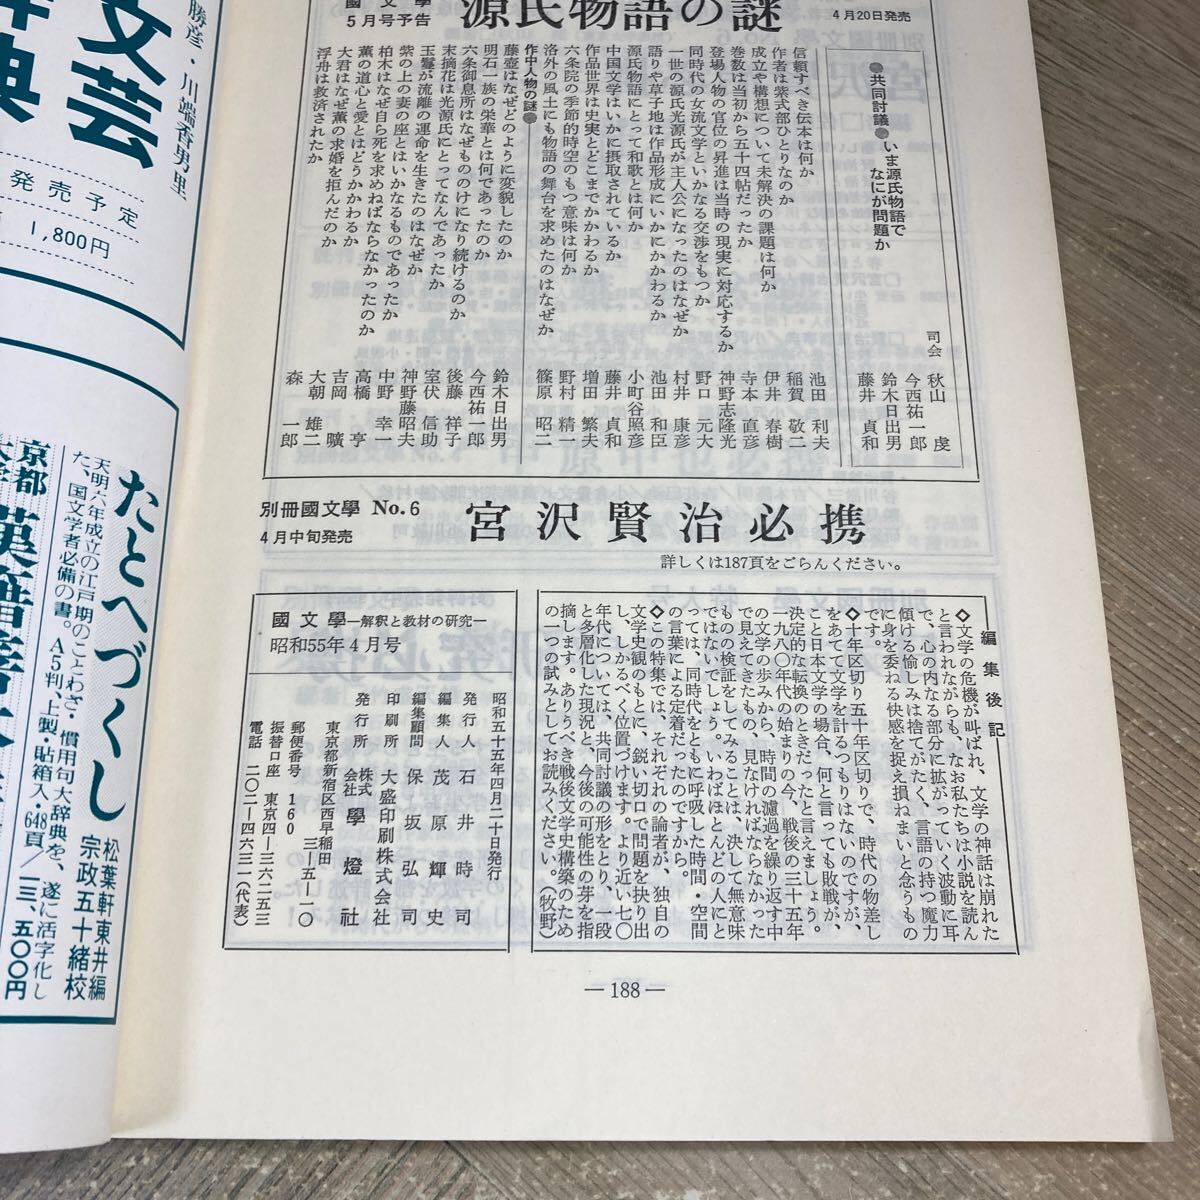 國文學
5月号予告
源氏物語の謎
4月20日発売
●共同討議●いま源氏物語で
なにが問題か
司会 秋山 虔
今西祐一郎
鈴木日出男
藤井 貞和
信頼すべき伝本は何か 池田 利夫
作者は紫式部ひとりなのか 稲賀 敬二
成立や構想について未解決の課題は何か 伊井 春樹
巻数は当初から五十四帖だったか 寺本 直彦
登場人物の官位の昇進は当時の現実に対応するか 神野志隆光
同時代の女流文学といかなる交渉をもつか 野口 元大
一世の源氏光源氏が主人公になったのはなぜか 村井 康彦
語りや草子地は作品形成にいかにかかわるか 池田 和臣
源氏物語にとって和歌とは何か 小町谷照彦
中国文学はいかに摂取されているか 藤井 貞和
作品世界は史実とどこまでかかわるか 増田 繁夫
六条院の季節的時空のもつ意味は何か 野村 精一
洛外の風土にも物語の舞台を求めたのはなぜか 篠原 昭二
作中人物の謎●
藤壺はなぜどのように変貌したのか 鈴木日出男
明石一族の栄華とは何であったのか 今西祐一郎
六条御息所はなぜもののけになり続けるのか 後藤 祥子
末摘花は光源氏にとってなんであったか 室伏 信助
玉鬘が流離の運命を生きたのはなぜか 神野藤昭夫
紫の上の妻の座とはいかなるものであったか 中野 幸一
柏木はなぜ自ら死を求めねばならなかったのか 高橋 亨
薫の道心と愛とはどうかかわるか 吉岡 曠
大君はなぜ薫の求婚を拒んだのか 大朝 雄二
浮舟は救済されたか 森 一郎
別冊國文學 No.6
4月中旬発売
宮沢賢治必携
詳しくは187頁をごらんください。
編集後記
◇文学の危機が叫ばれ、文学の神話は崩れた
と言われながらも、なお私たちは小説を読ん
で、心の内なる部分に拡がっていく波動に耳
傾ける愉しみは捨てがたく、言語の持つ魔力
に身を委ねる快感を捉え損ねまいと念うもの
です。
◇十年区切り五十年区切りで、時代の物差し
をあてて文学を計るつもりはないのですが、
こと日本文学の場合、何と言っても敗戦が、
決定的な転換のときだったと言えましょう。
一九八〇年代の始まりの今、戦後の三十五年
の文学の歩みから、時間の濾過を繰り返す中
で見えてきたもの、見なければならなかった
ものの検証をしてみることは、決して無意味
ではないでしょう。いわばほとんどの人にと
っては、同時代をともに呼吸した時間・空間
の言葉による定着だったのですから。
◇この特集では、それぞれの論者が、独自の
文学史観のもとに、鋭い切り口で問題を抉り出
し、しかるべく位置づけます。より近い七〇
年代については、共同討議の形をとり、一段
と多層化した現況と、今後の可能性の芽を指
摘します。ありうべき戦後文学史構築のため
の一つの試みとしてお読みください。(牧野)
國文學—解釈と教材の研究—
昭和55年4月号
昭和五十五年四月二十日発行
発行人 石井時司
編集人 茂原輝史
編集顧問 保坂弘司
印刷所 大盛印刷株式会社
発行所 株式会社 學燈社
東京都新宿区西早稲田三-五-一〇
郵便番号 160
振替口座 東京四-三六二五三
電話 二〇二-四六三一(代表)
—188—
文芸
勝彦・川端香男里
発売予定
1,800円
たとへづくし
松葉軒東井編
宗政五十緒校
天明六年成立の江戸期のことわざ・慣用句大辞典を、遂に活字化し
た、国文学者必備の書。A5判、上製・貼箱入・648頁/一三、五〇〇円
京都